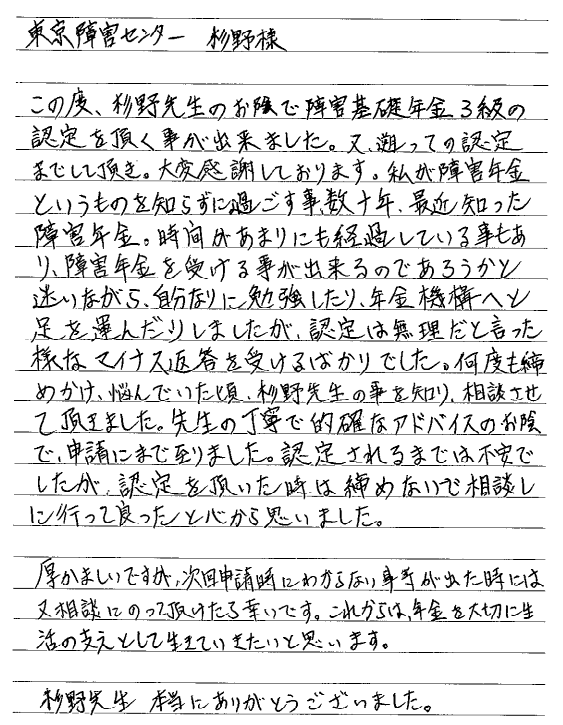 東京障害センター 杉野様
この度、杉野先生のお陰で障害基礎年金3級の
認定を頂く事が出来ました。又、遡っての認定
までして頂き。大変感謝しております。私が障害年金
というものを知らずに過ごす事、数十年、最近知った
障害年金。時間があまりにも経過している事もあ
り、障害年金を受ける事が出来るのであろうかと
迷いながら、自分なりに勉強したり、年金機構へと
足を運んだりしましたが、認定は無理だと言った
様なマイナス返答を受けるばかりでした。何度も締
めかけ、悩んでいた頃、杉野先生の事を知り、相談させ
て頂きました。先生の丁寧で的確なアドバイスのお陰
で、申請にまで至りました。認定されるまでは不安で
したが、認定を頂いた時は締めないで相談し
に行って良かったと心から思いました。
厚かましいですが、次回申請時にわからない事等が出た時には
又相談にのって頂けたら幸いです。これからは、年金を大切に生
活の支えとして生きていきたいと思います。
杉野先生 本当にありがとうございました。